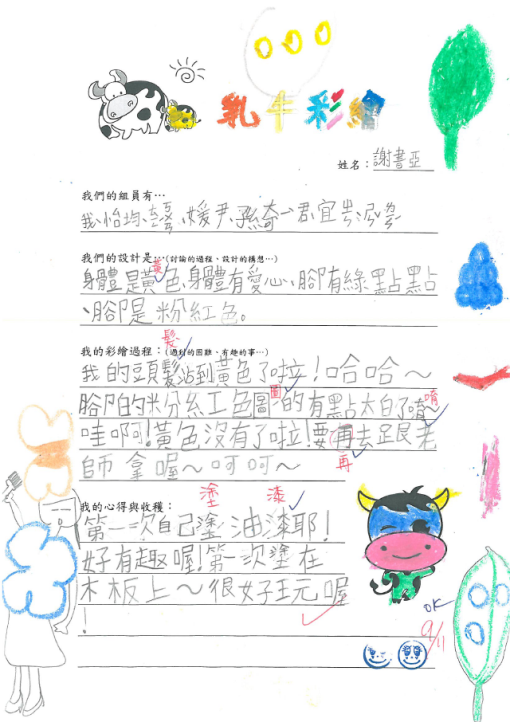 乳牛彩繪
姓名：謝書亞
我們的組員有…
我、怡均、媛尹、孫綺、君宜
我們的設計是…(討論的過程、設計的構想…)
黃
身體是黃色、身體有愛心、腳有綠點點
、腳是粉紅色。
髮
我的彩繪過程：(遇到的困難、有趣的事…)
我的頭髮沾到黃色了啦！哈哈～
圖 唷
腳的粉紅色圖的有點太白了唷
哇啊！黃色沒有了啦！要再去跟老
師拿喔～呵呵～
再
塗 漆
我的心得與收穫：
第一次自己塗油漆耶！
好有趣喔！第一次塗在
木板上～很好玩喔
！
OK
9/11